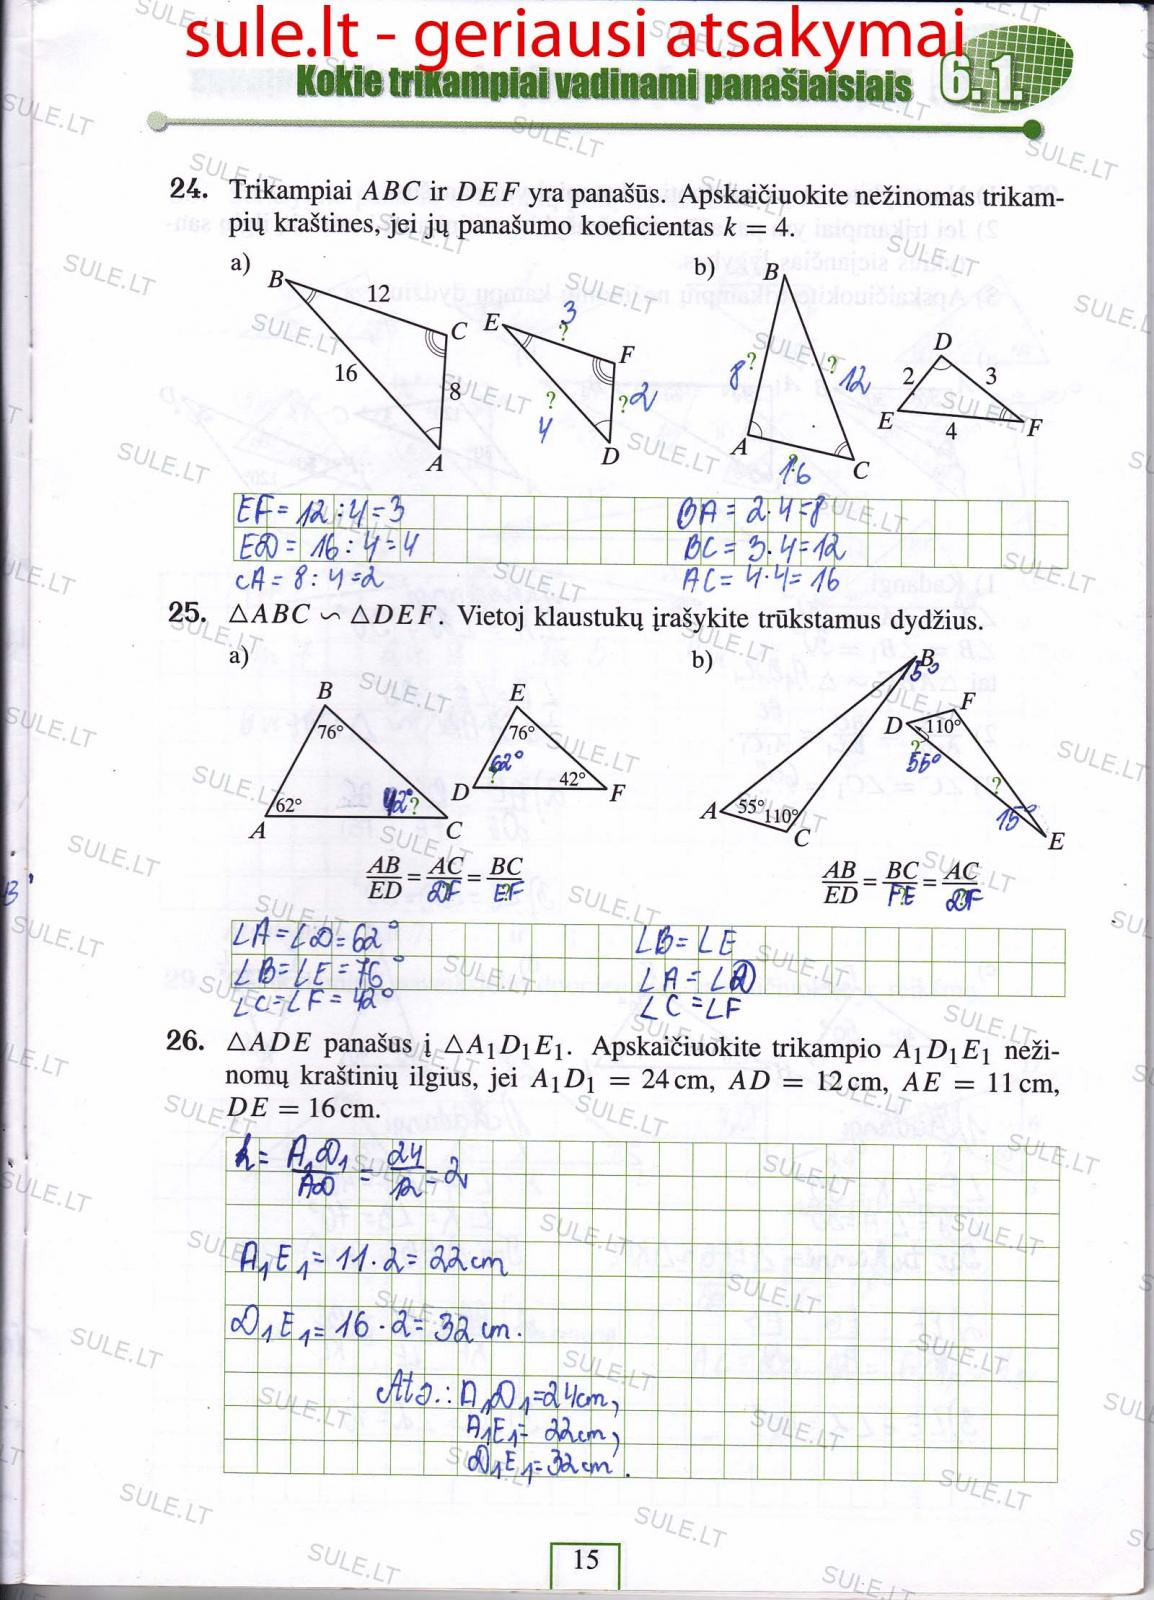 sule.lt - geriausi atsakymai
Kokie trikampiai vadinami panašiaisiais 6.1.
24. Trikampiai ABC ir DEF yra panašūs. Apskaičiuokite nežinomas trikam-
pių kraštines, jei jų panašumo koeficientas k = 4.
a)
B
12
C
16
8
A
E
3
?
F
?
4
?
2
D
b)
B
8
?
?
12
A
?
16
C
D
2
3
E
4
F
EF = 12 : 4 = 3
ED = 16 : 4 = 4
CA = 8 : 4 = 2
BA = 2·4 = 8
BC = 3·4 = 12
AC = 4·4 = 16
25. △ABC ∽ △DEF. Vietoj klaustukų įrašykite trūkstamus dydžius.
a)
B
76°
62°
42°?
A
C
E
76°
62°
?
42°
D
F
AB/ED = AC/DF = BC/EF
b)
B
15°
A
55°
110°
C
D
F
110°
?
55°
?
15°
E
AB/ED = BC/FE = AC/DF
∠A = ∠D = 62°
∠B = ∠E = 76°
∠C = ∠F = 42°
∠B = ∠E
∠A = ∠D
∠C = ∠F
26. △ADE panašus į △A₁D₁E₁. Apskaičiuokite trikampio A₁D₁E₁ neži-
nomų kraštinių ilgius, jei A₁D₁ = 24 cm, AD = 12 cm, AE = 11 cm,
DE = 16 cm.
k = A₁D₁/AD = 24/12 = 2
A₁E₁ = 11·2 = 22 cm
D₁E₁ = 16·2 = 32 cm.
Ats.: A₁D₁ = 24cm,
A₁E₁ = 22cm,
D₁E₁ = 32cm.
15